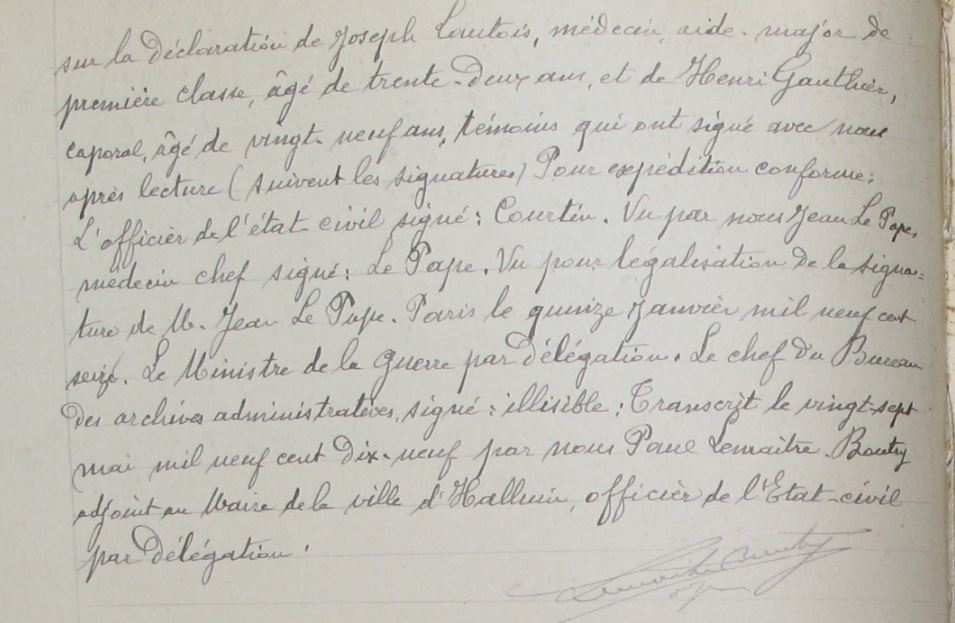 sur la déclaration de Joseph Lautois, médecin, aide-major de
première classe, âgé de trente-deux ans, et de Henri Gauthier,
caporal, âgé de vingt-neuf ans, témoins qui ont signé avec nous
après lecture (suivent les signatures) Pour expédition conforme:
L'officier de l'état civil signé: Courtin. Vu par nous Jean Le Pape,
médecin chef signé: Le Pape. Vu pour légalisation de la signa-
ture de M. Jean Le Pape. Paris le quinze Janvier mil neuf cent
seize. Le Ministre de la guerre par délégation. Le chef du Bureau
des archives administratives, signé: illisible; Transcrit le vingt-sept
mai mil neuf cent dix-neuf par nous Paul Lemaitre-Boutry
adjoint au Maire de la ville d'Halluin, officier de l'Etat-civil
par délégation.
Lemaitre Boutry